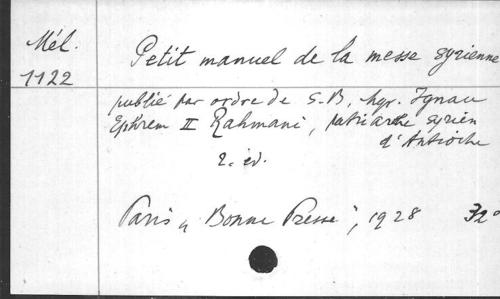 Mél.
1122
Petit manuel de la messe syrienne
publié par ordre de S. B. Mgr. Ignace
Ephrem II Rahmani, patriarche syrien
d'Antioche
2. éd.
Paris "Bonne Presse", 1928 32°